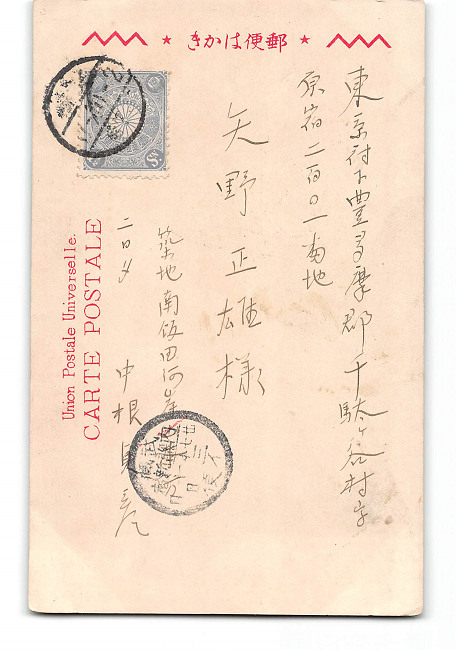 きかは便郵
東京府下豊多摩郡千駄ヶ谷村字
原宿二百〇一番地
矢野正雄様
築地南飯田河岸
二日夕
中根
Union Postale Universelle.
CARTE POSTALE